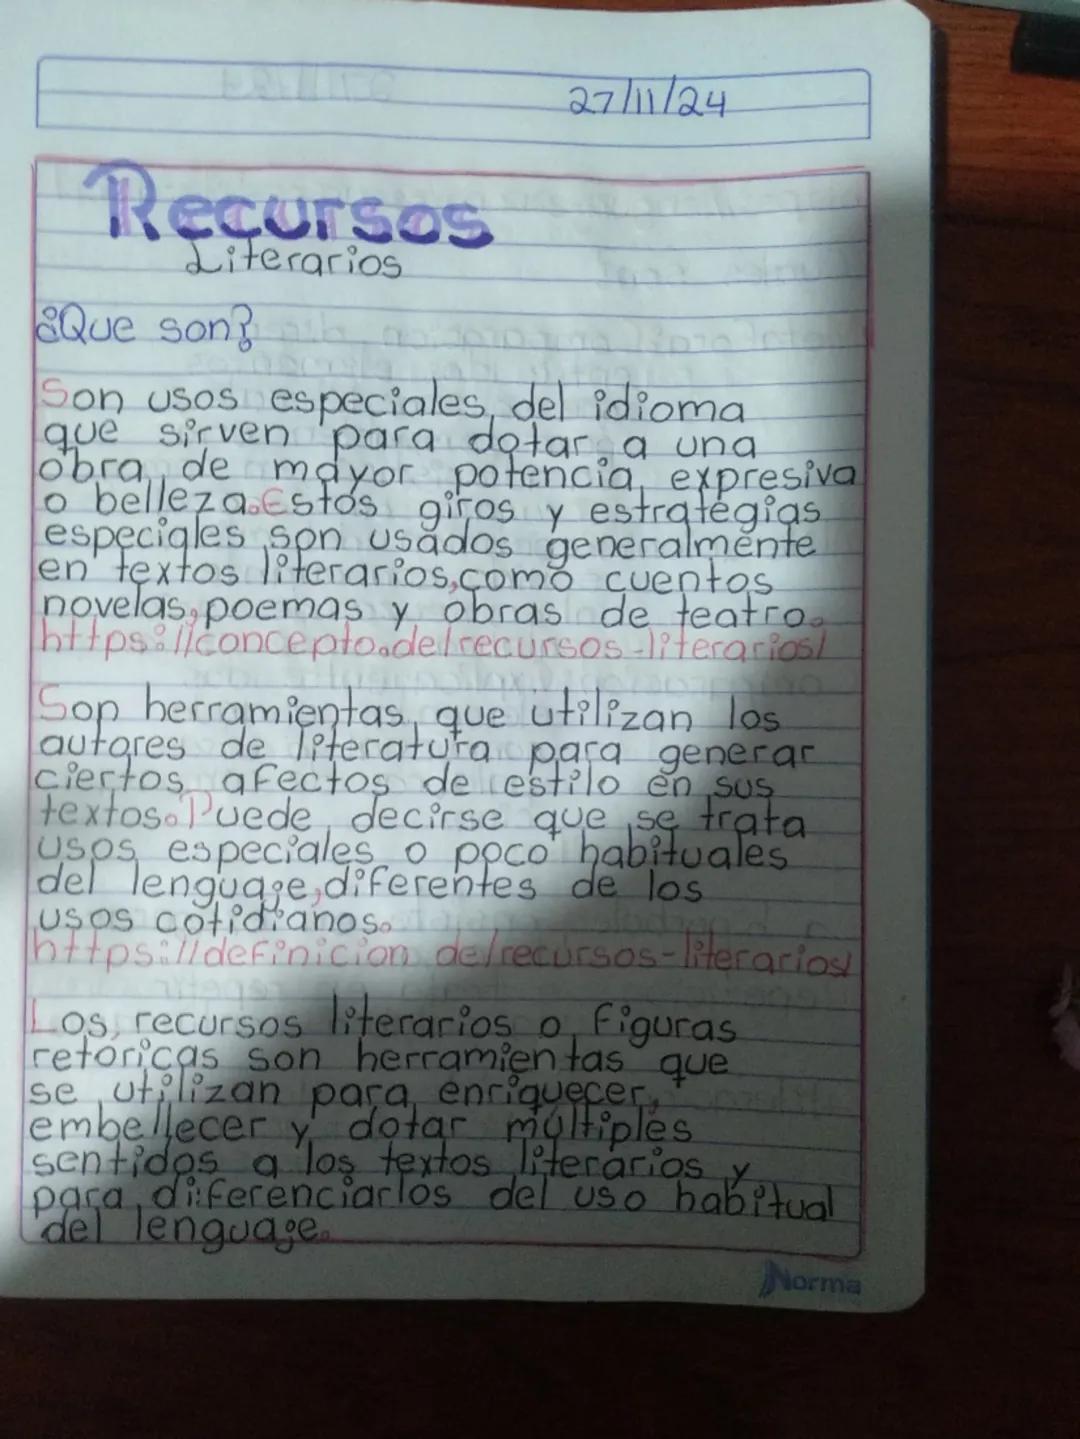 27/11/24
Recursos
Literarios
¿Que son?
Son usos especiales, del idioma
que sirven para dotar a una
obra, de mayor potencia, expresiva
o belleza.Estos giros y estrategias
especiales son usados generalmente
en textos literarios,como cuentos
novelas,poemas y obras de teatro.
https://concepto.de/recursos-literarios/
Son herramientas, que utilizan los
autores de literatura para generar
ciertos afectos de estilo en sus
textos.Puede decirse que se trata
usos especiales o poco habituales
del lenguaje,diferentes de los
usos cotidianos.
https://definicion de/recursos-literarios/
Los, recursos literarios o figuras
retoricas son herramientas que
se utilizan para enriquecer,
embellecer y dotar múltiples
sentidos a los textos literarios y
para diferenciarlos del uso habitual
del lenguaje.
Norma